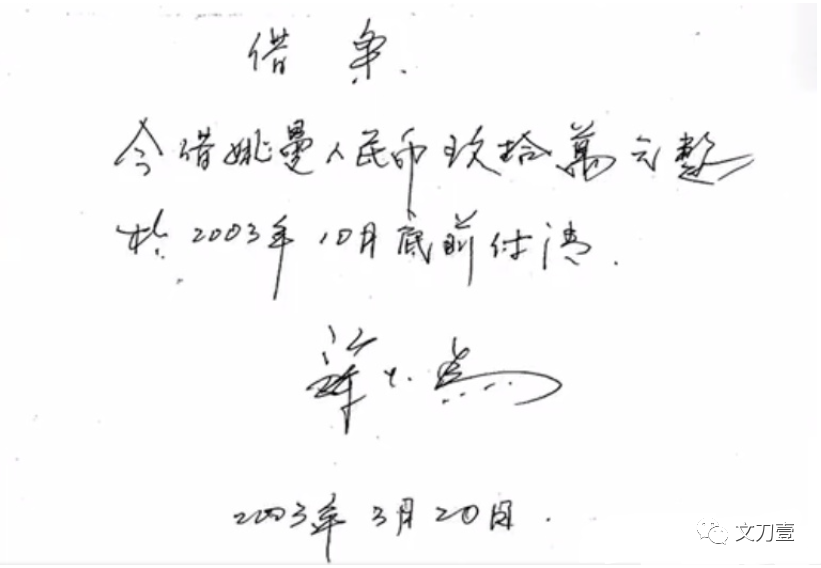 借条
今借姚曼人民币玖拾萬元整
于2003年10月底前付清.
2003年3月20日.
文刀壹